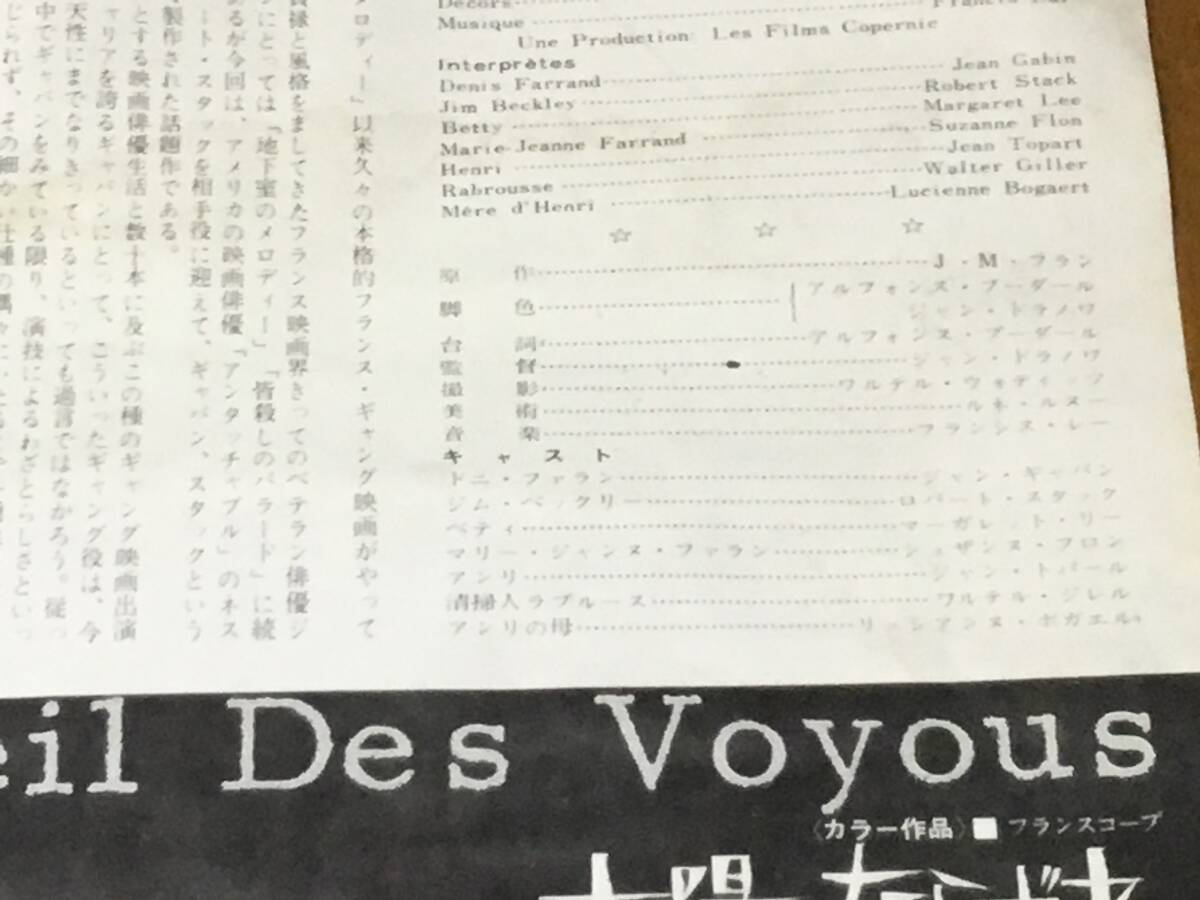 Décors
Musique Francis
Une Production Les Films Copernic
Interprètes
Denis Farrand Jean Gabin
Jim Beckley Robert Stack
Betty Margaret Lee
Marie-Jeanne Farrand Suzanne Flon
Henri Jean Topart
Rabrousse Walter Giller
Mère d'Henri Lucienne Bogaert
☆ ☆ ☆
原作 J・M・フラン
脚色 アルフォンス・ブーダール
ジャン・ドラノワ
台詞 アルフォンス・ブーダール
監督 ジャン・ドラノワ
撮影 ワルテル・ウォティッツ
美術 ルネ・ルヌー
音楽 フランシス・レー
キャスト
ドニ・ファラン ジャン・ギャバン
ジム・ベックリー ロバート・スタック
ベティ マーガレット・リー
マリー・ジャンヌ・ファラン シュザンヌ・フロン
アンリ ジャン・トパール
清掃人ラブルース ワルテル・ジレル
アンリの母 リュシアンヌ・ボガエル
メロディー」以来久々の本格的フランス・ギャング映画がやって
貫禄と風格をましてきたフランス映画界きってのベテラン俳優ジ
にとっては「地下室のメロディー」「皆殺しのバラード」に続
あるが今回は、アメリカの映画俳優「アンタッチャブル」のネス
ート・スタックを相手役に迎えて、ギャバン、スタックという
製作された話題作である。
とする映画俳優生活と数十本に及ぶこの種のギャング映画出演
ャリアを誇るギャバンにとって、こういったギャング役は、今
天性にまでなりきっているといっても過言ではなかろう。従っ
中でギャバンをみている限り、演技によるわざとらしさといっ
じられず、その細かい仕種の隅々に
eil Des Voyous
〈カラー作品〉■フランスコープ
太陽のならず者